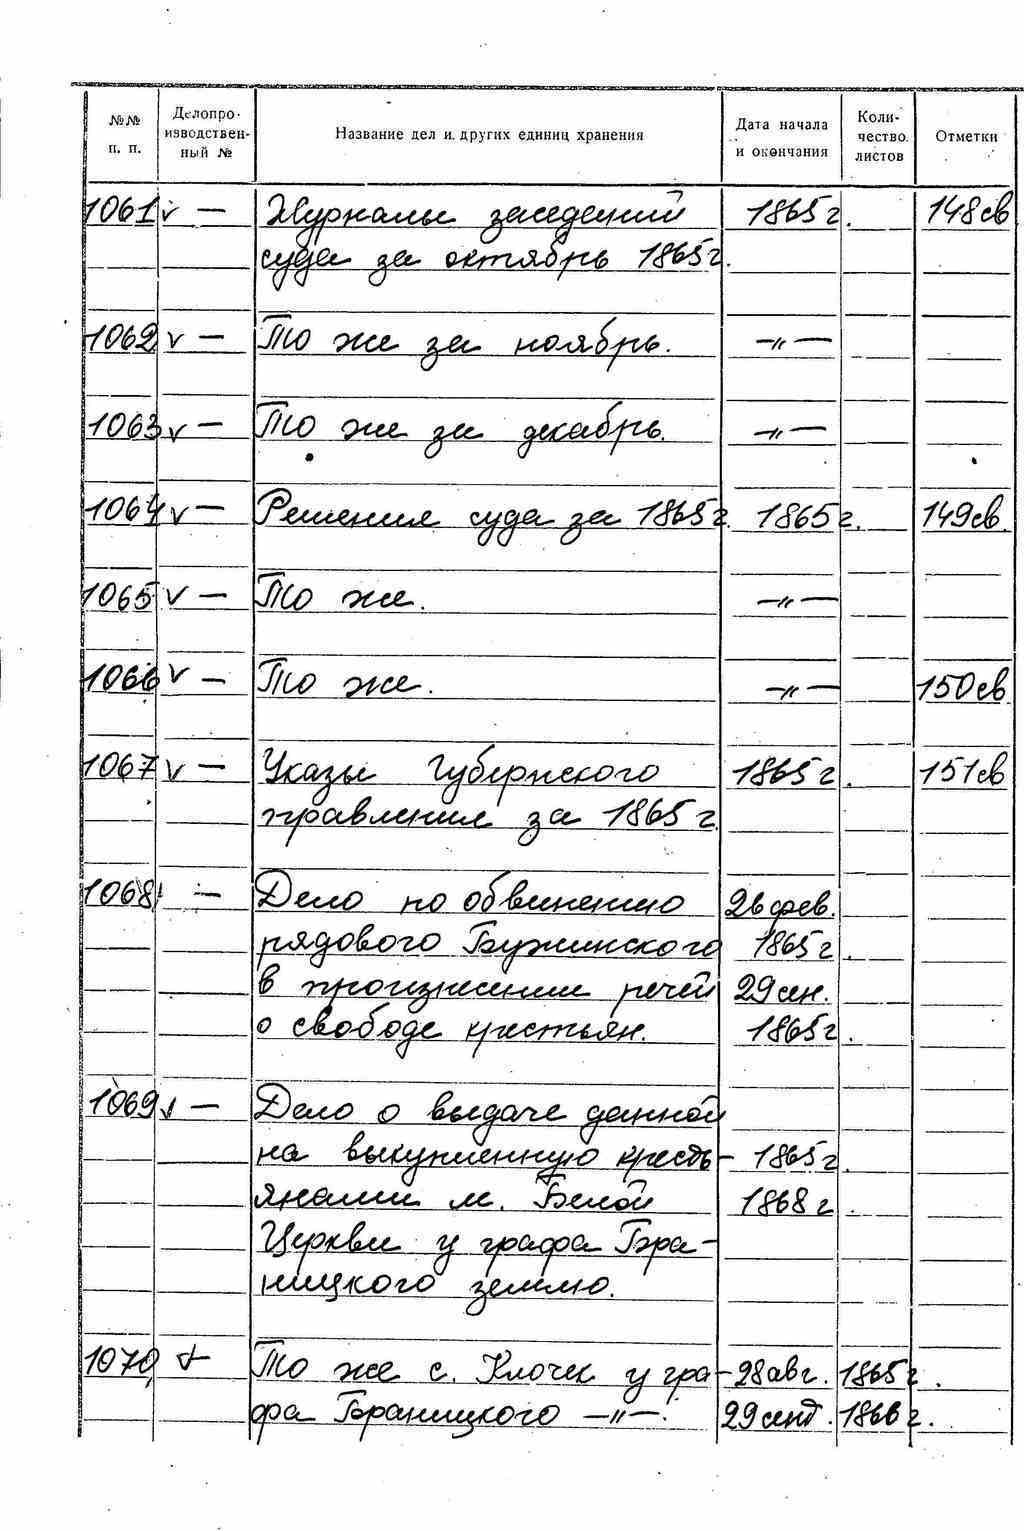 №№ п. п.
Делопро-
изводствен-
ный №
Название дел и других единиц хранения
Дата начала
и окончания
Коли-
чество
листов
Отметки
1061 v — Журналы заседаний 1865 г. 148 св
суда за октябрь 1865 г.
1062 v — То же за ноябрь. —„—
1063 v — То же за декабрь. —„—
1064 v — Решения суда за 1865 г. 1865 г. 149 св.
1065 v — То же. —„—
1066 v — То же. —„— 150 св
1067 v — Указы Губернского 1865 г. 151 св
правления за 1865 г.
1068 — Дело по обвинению 26 фев.
рядового Бужинского 1865 г.
в произнесении речей 29 сен.
о свободе крестьян. 1865 г.
1069 v — Дело о выдаче данной
на выкупленную кресть- 1865 г.
янами м. Белой 1868 г.
Церкви у графа Бра-
ницкого землю.
1070 v — То же с. Клочек у гра- 28 авг. 1865 г.
фа Браницкого —„—. 29 сент. 1866 г.